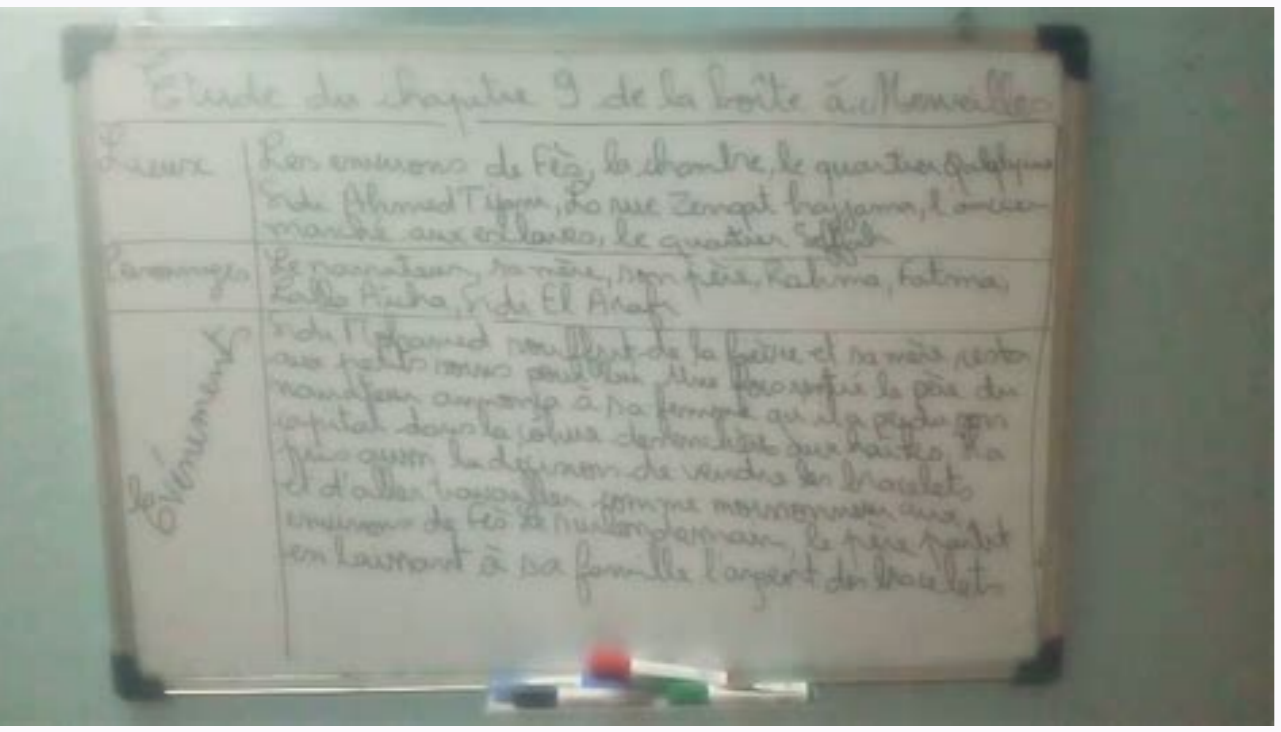 Etude du chapitre 9 de la boîte à Merveilles
Lieux
Les environs de Fès, la chambre, le quartier
Sidi Ahmed Tijani, La rue Zenqat hajjama, l'ancien
marché aux esclaves, le quartier Seffah
Personnages
Le narrateur, sa mère, son père, Rahma, Fatma,
Lalla Aicha, Sidi El Arafi
les Événements
Sidi Mohamed souffrait de la fièvre et sa mère resta
aux petits soins pour lui. Une fois rentré le père du
narrateur annonça à sa femme qu'il a perdu son
capital dans la cohue aux haïks. La
la décision de vendre les bracelets
et d'aller travailler comme moissonneur aux
environs de Fès Le surlendemain, le père partit
en laissant à sa famille l'argent des bracelets